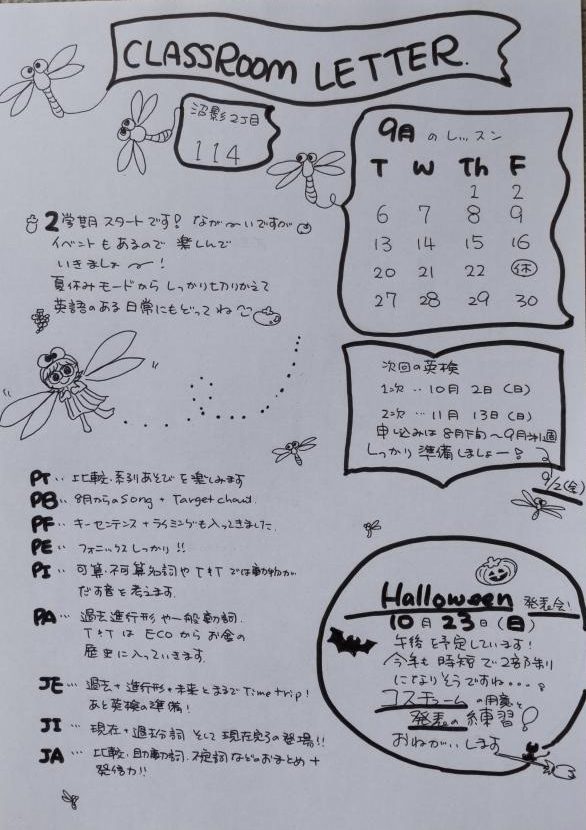 CLASSROOM LETTER.
沼影2丁目
114
9月 のレッスン
T W Th F
1 2
6 7 8 9
13 14 15 16
20 21 22 休
27 28 29 30
2学期スタートです! なが〜いですが
イベントもあるので 楽しんで
いきましょ〜!
夏休みモードから しっかり切りかえて
英語のある日常にもどってね
次回の英検
1次‥10月 2日(日)
2次‥11月 13日(日)
申し込みは8月下旬〜9月
しっかり準備しましょー!
9/2(金)
PT‥比較、系列あそびを楽しみます
PB‥8月からのSong + Target chant.
PF‥キーセンテンス+ライミングも入ってきました。
PE‥フォニックスしっかり!!
PI‥可算、不可算名詞や T&T では動物が
だす音を考えます。
PA‥過去進行形や一般動詞。
T&TはECOからお金の
歴史に入っていきます。
JE‥過去+進行形+未来とまるでTime trip!
あと英検の準備!
JI‥現在+過去分詞 そして 現在完了の登場!!
JA‥比較、助動詞、不定詞などのおまとめ+
発信力!!
Halloween 発表会!
10月23日(日)
午後を予定しています!
今年も時短で2部制
になりそうですね…。
コスチュームの用意と
発表の練習!
おねがいします